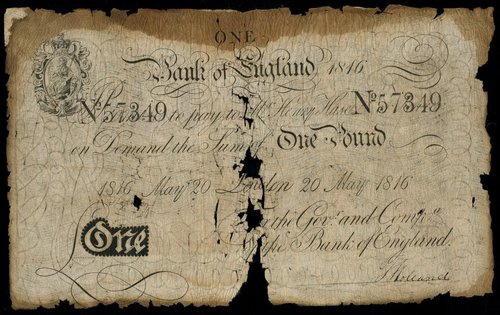 ONE
Bank of England 1816
Nº57349 to pay to Mr Henry Hase Nº57349
on Demand the Sum of One Pound
1816 May 20 London 20 May 1816
the Govr and Compa
of the Bank of England.
One
Holland